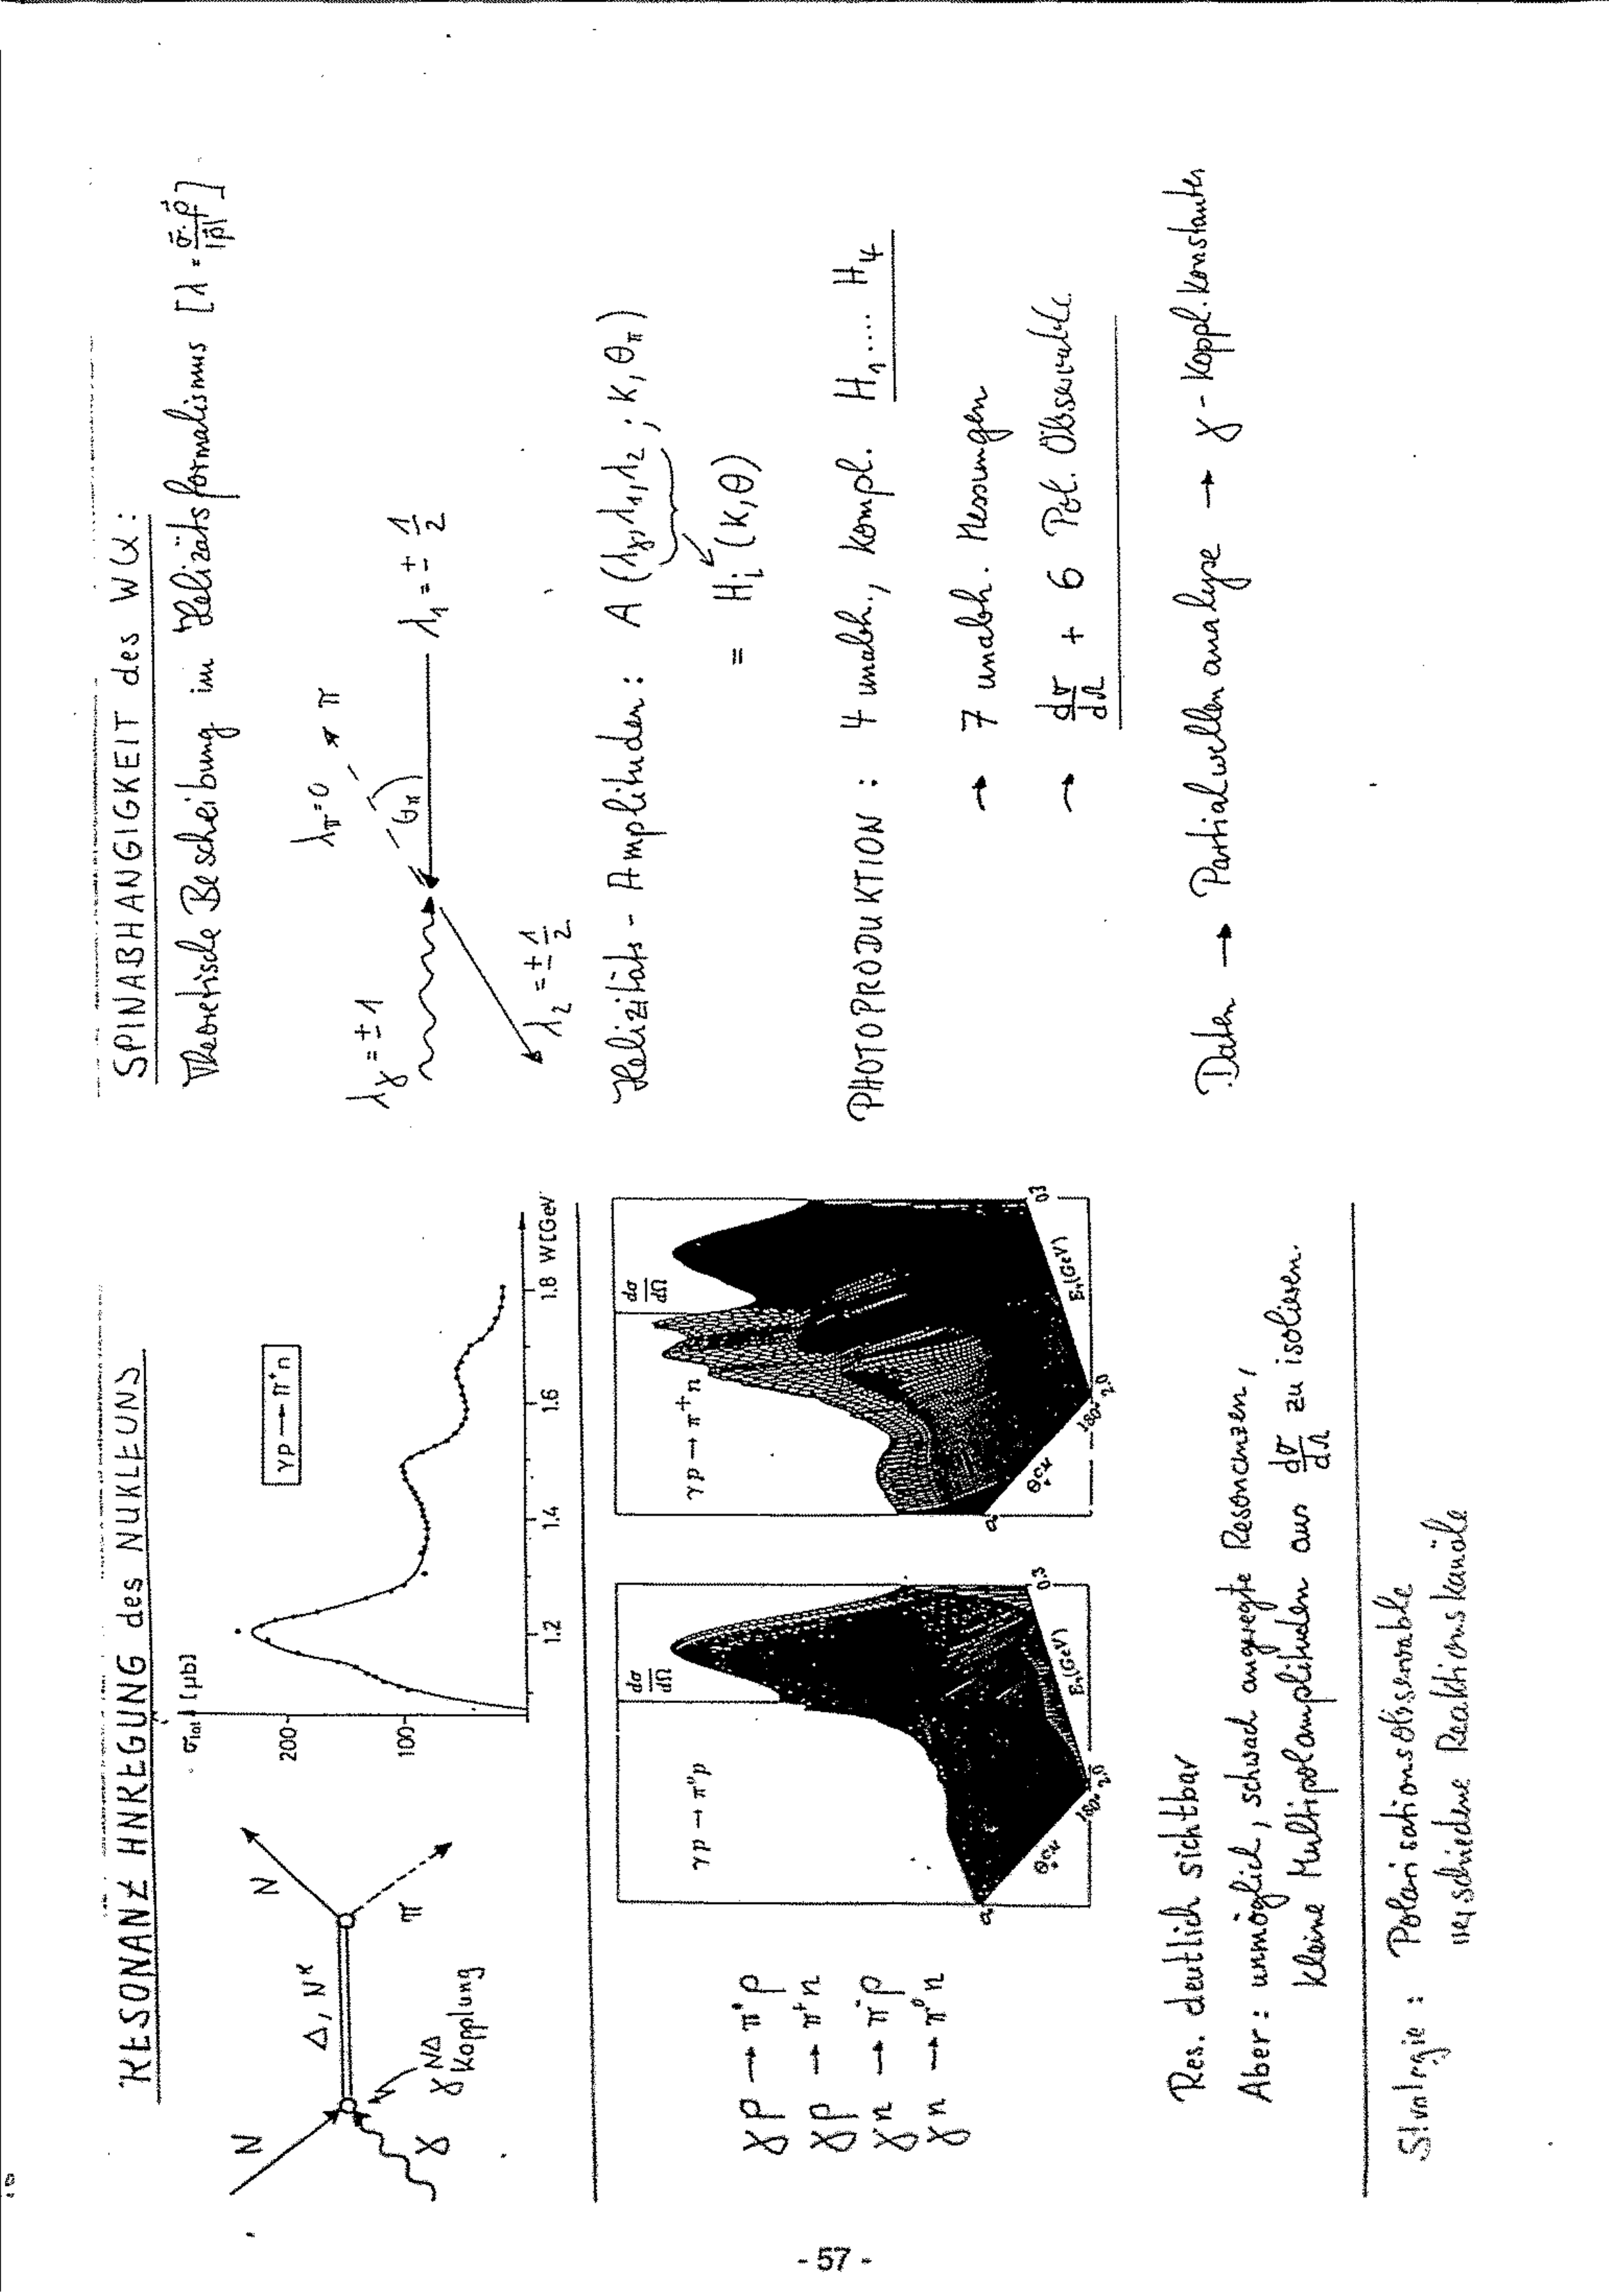 RESONANZANREGUNG des NUKLEONS
N
N
Δ, N*
π
γ
γNΔ
Kopplung
σtot [μb]
200
100
γp → π⁺n
1.2
1.4
1.6
1.8
W[GeV
γp → π°p
γp → π⁺n
γn → π⁻p
γn → π°n
γp → π°p
dσ/dΩ
0°
Θ CM
180°
2.0
Eγ(GeV)
0.3
γp → π⁺n
dσ/dΩ
0°
Θ CM
180°
2.0
Eγ(GeV)
0.3
Res. deutlich sichtbar
Aber: unmöglich, schwach angeregte Resonanzen,
kleine Multipolamplituden aus dσ/dΩ zu isolieren.
Strategie: Polarisationsobservable
verschiedene Reaktionskanäle
SPINABHANGIGKEIT des WQ:
Theoretische Bescheibung im Helizitätsformalismus [λ = σ⃗·p⃗/|p⃗|]
λγ = ±1
λπ=0
π
Θπ
λ₁ = ± 1/2
λ₂ = ± 1/2
Helizitäts-Amplituden: A (λγ, λ₁, λ₂ ; K, Θπ)
= Hi (K, Θ)
PHOTOPRODUKTION: 4 unabh., kompl. H₁ .... H₄
→ 7 unabh. Messungen
→ dσ/dΩ + 6 Pol. Observable.
Daten → Partialwellenanalyse → γ-Koppl.konstanten
- 57 -